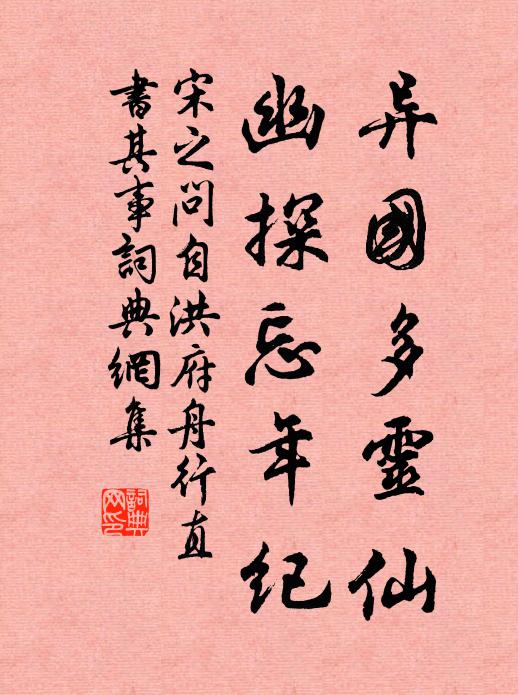 异國多靈仙
幽探忘年紀
宋之问自洪府舟行直
書其事詞典網集
詞典網印